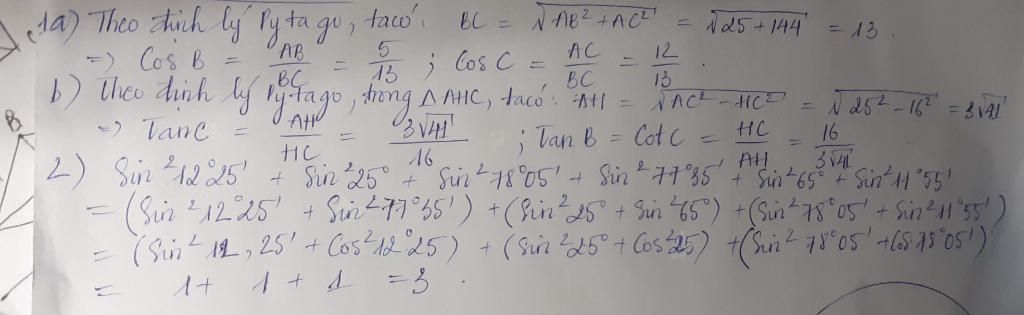 1a) Theo định lý Pytago, ta có: BC = √AB² + AC² = √25 + 144 = 13.
=> Cos B = AB/BC = 5/13 ; Cos C = AC/BC = 12/13.
b) Theo định lý Py-ta go, trong △AHC, ta có: AH = √AC² - HC² = √25² - 16² = 3√41
=> Tan C = AH/HC = 3√41/16 ; Tan B = Cot C = HC/AH = 16/3√41
2) Sin²12°25' + Sin²25° + Sin²78°05' + Sin²77°35' + Sin²65° + Sin²11°55'
= (Sin²12°25' + Sin²77°35') + (Sin²25° + Sin²65°) + (Sin²78°05' + Sin²11°55')
= (Sin²12,25' + Cos²12°25) + (Sin²25° + Cos²25) + (Sin²78°05' + Cos78°05')
= 1 + 1 + 1 = 3.
B